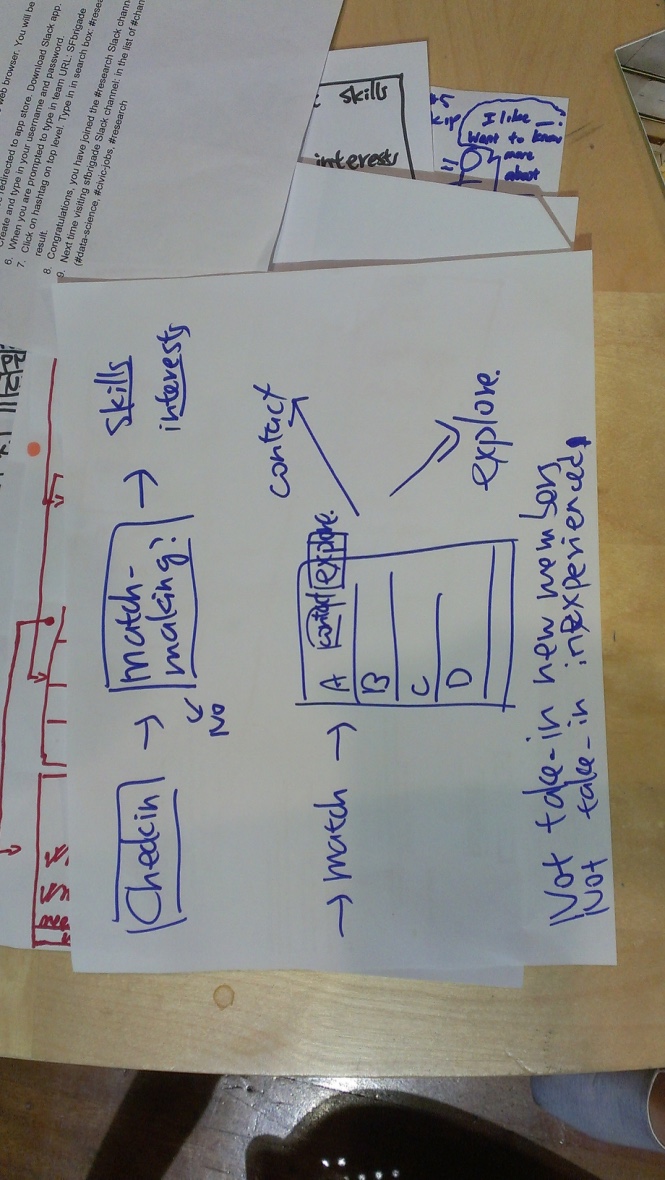 web browser. You will be
redirected to app store. Download Slack app.
Create and type in your username and password.
6. When you are prompted to type in team URL: SFbrigade
7. Click on hashtag on top level. Type in in search box: #rese
result.
8. Congratulations, you have joined the #research Slack chann
9. Next time visiting sfbrigade Slack channel: in the list of #chan
(#data-science, #civic-jobs, #research
skills
interests
I like
Want to know
more
about
Checkin → match-making? → skills
interests
No
→ match →
A contact explore.
B
C
D
contact
explore.
Not take-in new members
Not take-in inexperienced